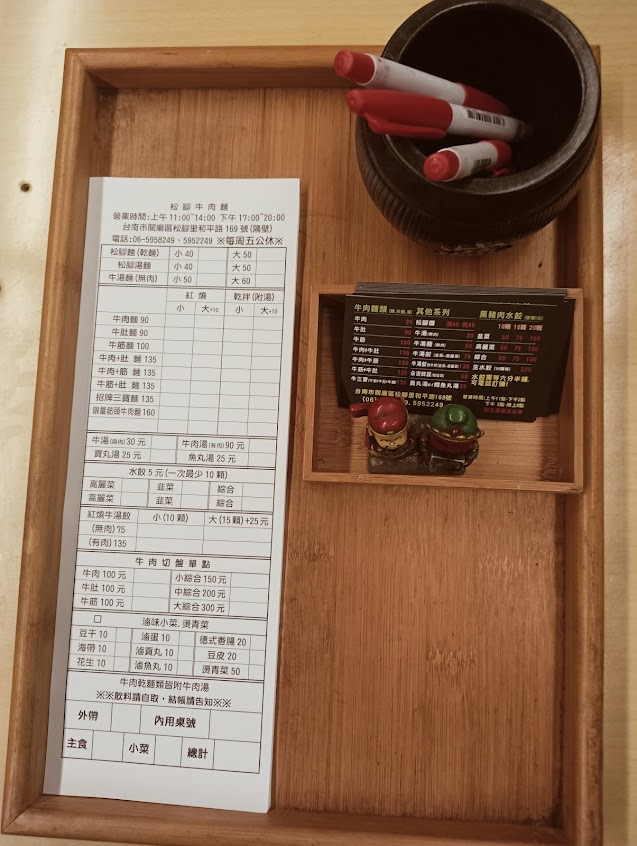 松腳牛肉麵
營業時間:上午 11:00~14:00 下午 17:00~20:00
台南市關廟區松腳里和平路 169 號(隔壁)
電話:06-5958249、5952249 ※每周五公休※
松腳麵(乾麵) 小 40 大 50
松腳湯麵 小 40 大 50
牛湯麵(無肉) 小 50 大 60
紅燒 乾拌(附湯)
小 大+10 小 大+10
牛肉麵 90
牛肚麵 90
牛筋麵 100
牛肉+肚 麵 135
牛肉+筋 麵 135
牛筋+肚 麵 135
招牌三寶麵 135
限量筋頭牛肉麵 160
牛湯(無肉)30 元 牛肉湯(有肉)90 元
貢丸湯 25 元 魚丸湯 25 元
水餃 5 元(一次最少 10 顆)
高麗菜 韭菜 綜合
高麗菜 韭菜 綜合
紅燒牛湯餃 小(10 顆) 大(15 顆)+25 元
(無肉)75
(有肉)135
牛肉切盤單點
牛肉 100 元 小綜合 150 元
牛肚 100 元 中綜合 200 元
牛筋 100 元 大綜合 300 元
□ 滷味小菜.燙青菜
豆干 10 滷蛋 10 德式香腸 20
海帶 10 滷貢丸 10 豆皮 20
花生 10 滷魚丸 10 燙青菜 50
牛肉乾麵類皆附牛肉湯
※※飲料請自取,結帳請告知※※
外帶 內用桌號
主食 小菜 總計
牛肉麵類 其他系列 黑豬肉水餃
10顆 15顆 20顆
牛肉 90 松腳麵
牛肚 90 牛湯
牛筋 牛湯麵
牛肉+牛肚 135 牛湯餃
牛肉+牛筋 135
牛筋+牛肚 135
牛三寶 貢丸湯or鱈魚丸湯
韭菜 50 75 100
高麗菜 50 75 100
綜合 50 75 100
生水餃
水餃需等六分半鐘,
可電話訂購!
台南市關廟區松腳里和平路169號
5952249
營業時間:上午11點-下午2點